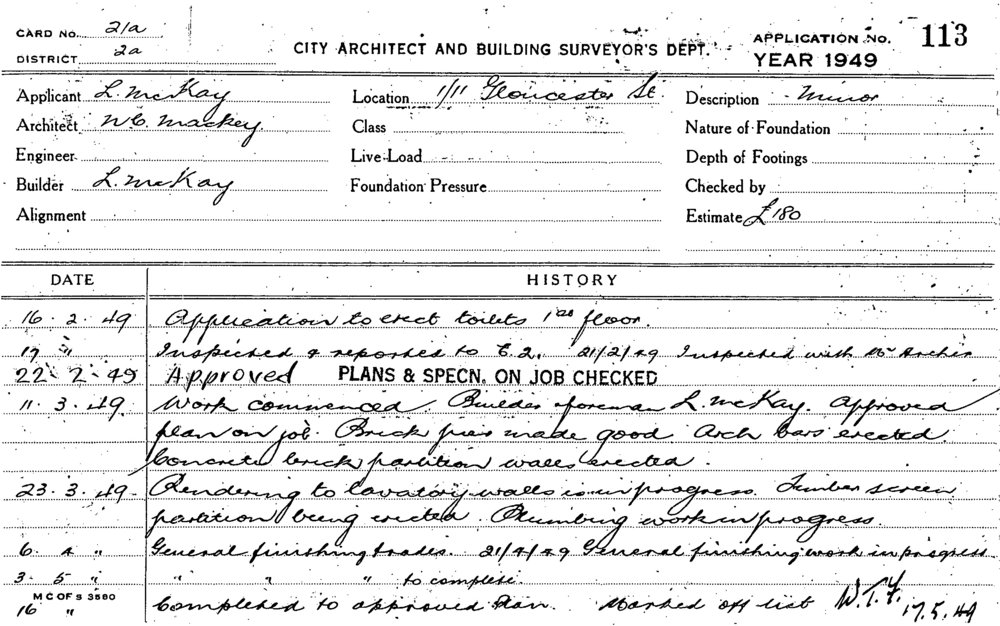 CARD NO. 21a
DISTRICT 2a
CITY ARCHITECT AND BUILDING SURVEYOR'S DEPT.
APPLICATION NO. 113
YEAR 1949
Applicant L. McKay
Location 1/11 Gloucester St.
Description Minor
Architect N.C. Mackey
Class
Nature of Foundation
Engineer
Live-Load
Depth of Footings
Builder L. McKay
Foundation Pressure
Checked by
Alignment
Estimate £180
DATE HISTORY
16. 2. 49 Application to erect toilets 1st floor.
17 " Inspected & reported to C.2. 21/2/49 Inspected with Mr Archer
22. 2. 49 Approved PLANS & SPECN. ON JOB CHECKED
11. 3. 49. Work commenced. Builder & foreman L. McKay. Approved
plan on job. Brick piers made good. Arch bars erected.
Concrete brick partition walls erected.
23. 3. 49. Rendering to lavatory walls is in progress. Timber screen
partition being erected. Plumbing work in progress.
6. 4 " General finishing trades. 21/4/49 General finishing work in progress
3. 5 " " " " to complete.
M C OF S 3580
16 " Completed to approved plan. Marked off list W.T.Y. 17.5.49